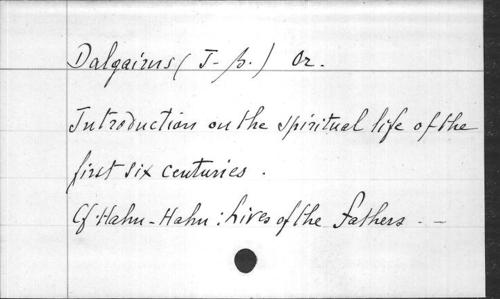 Dalgairns (J-B.) Or.
Introduction on the spiritual life of the
first six centuries.
Cf Hahn-Hahn: Lives of the Fathers. -